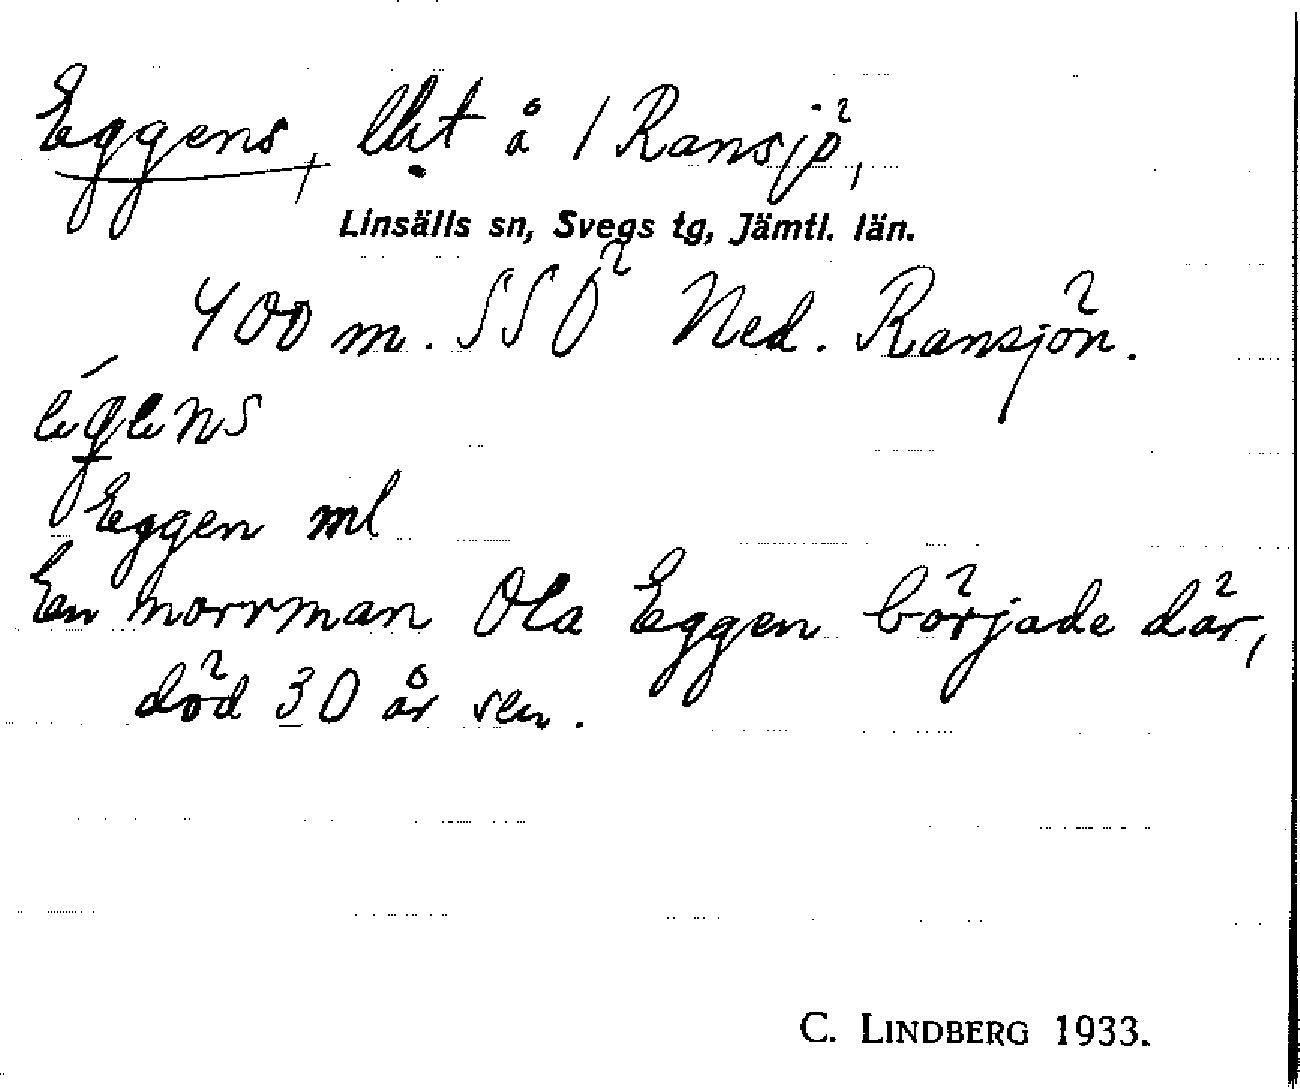 Eggens, lht å 1 Ransjö,
Linsälls sn, Svegs tg, Jämtl. län.
400 m. SSÖ Ned. Ransjön.
Eggen ml
En norrman Ola Eggen började där,
död 30 år sen.
C. LINDBERG 1933.